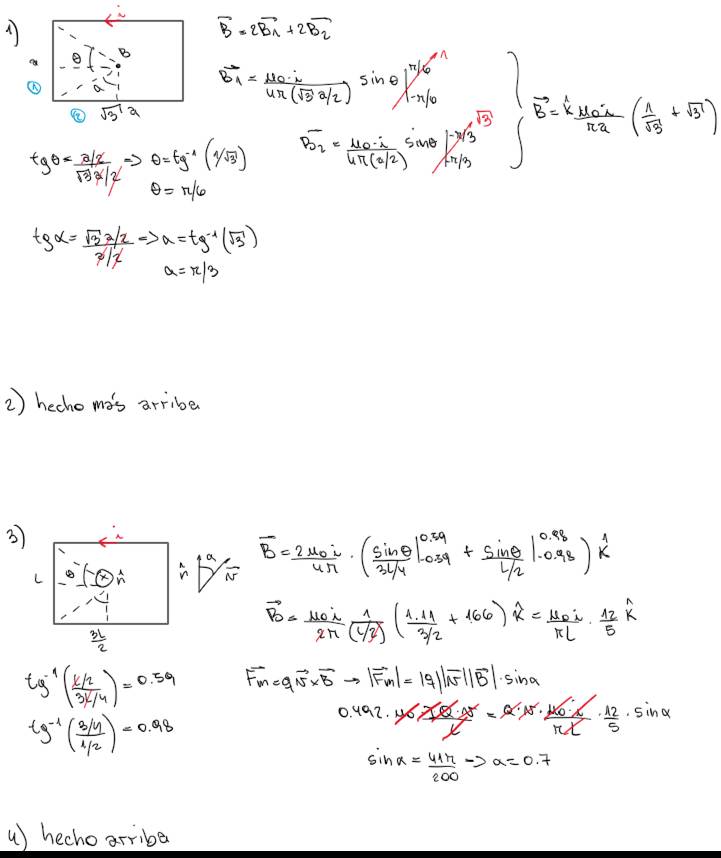 1)
i
B⃗ = 2B⃗1 + 2B⃗2
a
θ
B
α
①
②
√3 a
B⃗1 = μ0·i / 4π(√3 a/2) sinθ |π/6 -π/6 1
B⃗2 = μ0·i / 4π(a/2) sinθ |-π/3 π/3 √3
B⃗ = k̂ μ0 i / πa (1/√3 + √3)
tgθ = a/2 / √3 a/2 => θ = tg⁻¹ (1/√3)
θ = π/6
tgα = √3 a/2 / a/2 => a = tg⁻¹ (√3)
a = π/3
2) hecho más arriba
3)
i
L
θ
n̂
n̂ a v⃗
3L/2
B⃗ = 2μ0 i / 4π · (sinθ / 3L/4 |0.59 -0.59 + sinθ / L/2 |0.98 -0.98) k̂
B⃗ = μ0 i / 2π 1/(L/2) (1.11 / 3/2 + 1.66) k̂ = μ0 i / πL · 12/5 k̂
tg⁻¹ (L/2 / 3L/4) = 0.59
tg⁻¹ (3/4 / 1/2) = 0.98
F⃗m = q v⃗ × B⃗ → |F⃗m| = |q| |v⃗| |B⃗| · sina
0.492 · μ0 IQ·v / L = Q·v · μ0·i / πL · 12/5 · sinα
sinα = 41π / 200 -> a = 0.7
4) hecho arriba